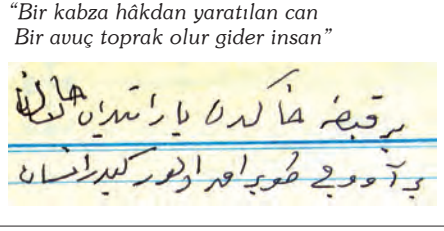 “Bir kabza hâkdan yaratılan can
Bir avuç toprak olur gider insan”
بر قبضه خاكدن يارا تيلان جان
بر آووج طوپراق اولور كيدر انسان